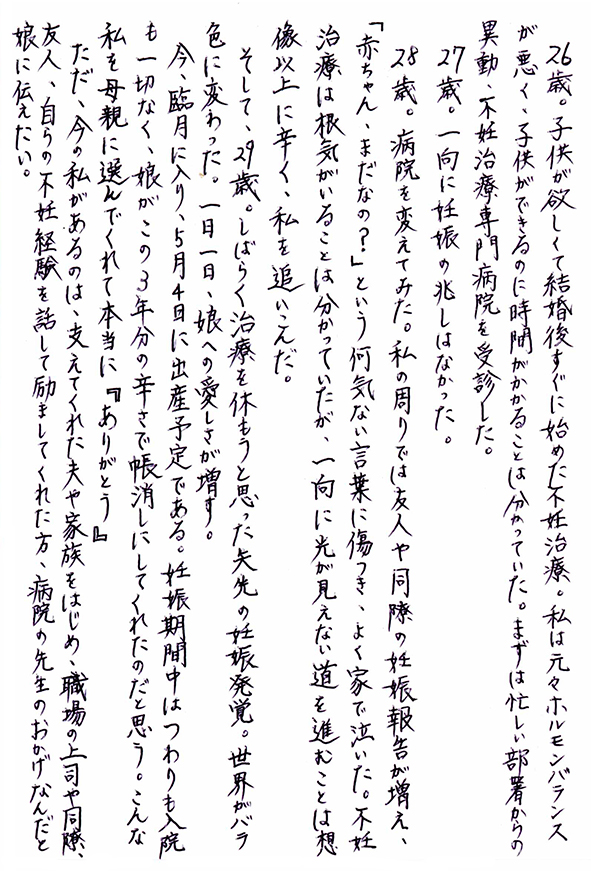 26歳。子供が欲しくて結婚後すぐに始めた不妊治療。私は元々ホルモンバランス
が悪く、子供ができるのに時間がかかることは分かっていた。まずは忙しい部署からの
異動、不妊治療専門病院を受診した。
27歳。一向に妊娠の兆しはなかった。
28歳。病院を変えてみた。私の周りでは友人や同僚の妊娠報告が増え、
「赤ちゃん、まだなの?」という何気ない言葉に傷つき、よく家で泣いた。不妊
治療は根気がいることは分かっていたが、一向に光が見えない道を進むことは想
像以上に辛く、私を追いこんだ。
そして、29歳。しばらく治療を休もうと思った矢先の妊娠発覚。世界がバラ
色に変わった。一日一日、娘への愛しさが増す。
今、臨月に入り、5月4日に出産予定である。妊娠期間中はつわりも入院
も一切なく、娘がこの3年分の辛さで帳消しにしてくれたのだと思う。こんな
私を母親に選んでくれて本当に『ありがとう』
ただ、今の私があるのは、支えてくれた夫や家族をはじめ、職場の上司や同僚、
友人、自らの不妊経験を話して励ましてくれた方、病院の先生のおかげなんだと
娘に伝えたい。